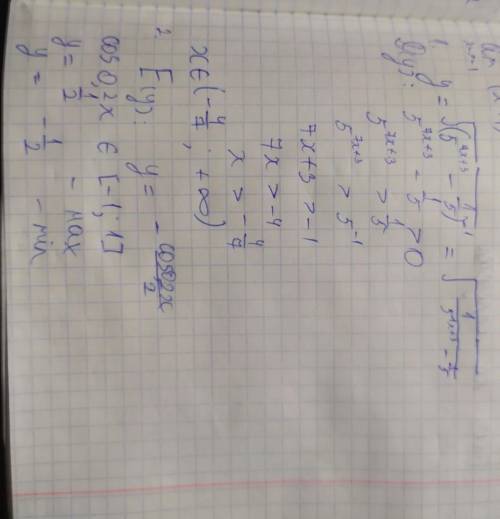 1. y = √((5^(7x+3) - 1/5)^(-1)) = √(1/(5^(7x+3) - 1/5))
D(y): 5^(7x+3) - 1/5 > 0
5^(7x+3) > 1/5
5^(7x+3) > 5^(-1)
7x+3 > -1
7x > -4
x > -4/7
x ∈ (-4/7; +∞)
2. E(y): y = - cos0,2x/2
cos 0,2x ∈ [-1; 1]
y = 1/2 - max
y = - 1/2 - min